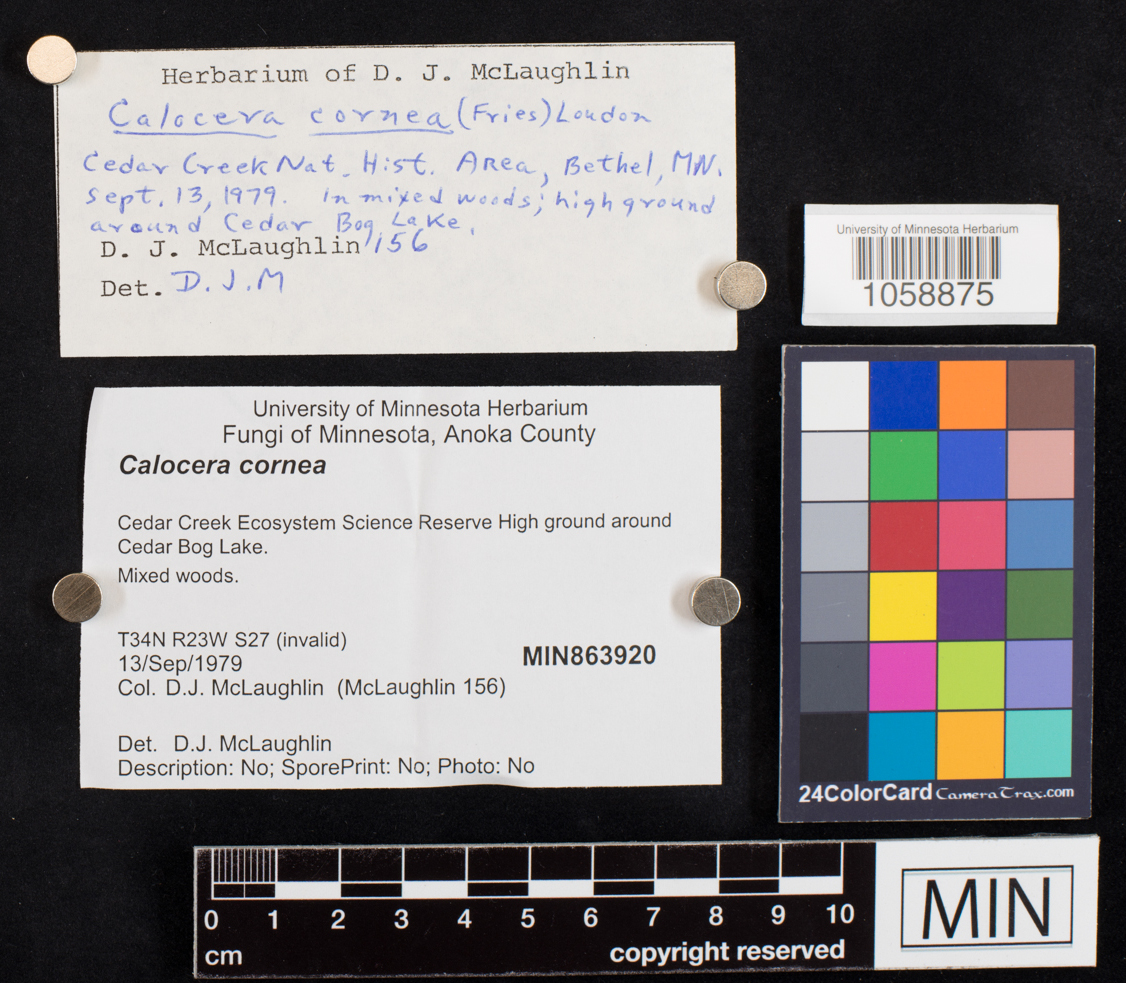 Herbarium of D. J. McLaughlin
Calocera cornea (Fries) Loudon
Cedar Creek Nat. Hist. Area, Bethel, MN.
Sept. 13, 1979. In mixed woods; high ground
around Cedar Bog Lake.
D. J. McLaughlin 156
Det. D.J.M
University of Minnesota Herbarium
1058875
University of Minnesota Herbarium
Fungi of Minnesota, Anoka County
Calocera cornea
Cedar Creek Ecosystem Science Reserve High ground around
Cedar Bog Lake.
Mixed woods.
T34N R23W S27 (invalid)
13/Sep/1979
MIN863920
Col. D.J. McLaughlin (McLaughlin 156)
Det. D.J. McLaughlin
Description: No; SporePrint: No; Photo: No
24ColorCard CameraTrax.com
0 1 2 3 4 5 6 7 8 9 10
cm
copyright reserved
MIN